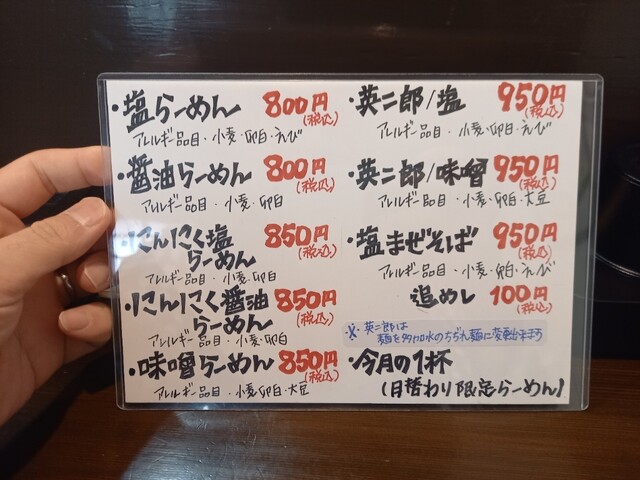 ・塩らーめん 800円
(税込)
アレルギー品目・小麦・卵白・えび
・醤油らーめん 800円
(税込)
アレルギー品目・小麦・卵白
・にんにく塩
らーめん 850円
(税込)
アレルギー品目・小麦・卵白
・にんにく醤油
らーめん 850円
(税込)
アレルギー品目・小麦・卵白
・味噌らーめん 850円
(税込)
アレルギー品目・小麦・卵白・大豆
・英二郎/塩 950円
(税込)
アレルギー品目・小麦・卵白・えび
・英二郎/味噌 950円
(税込)
アレルギー品目・小麦・卵白・大豆
・塩まぜそば 950円
(税込)
アレルギー品目・小麦・卵白・えび
追めし 100円
(税込)
※英二郎は
麺を多加水のちぢれ麺に変更出来ます
・今月の1杯
(日替わり限定らーめん)